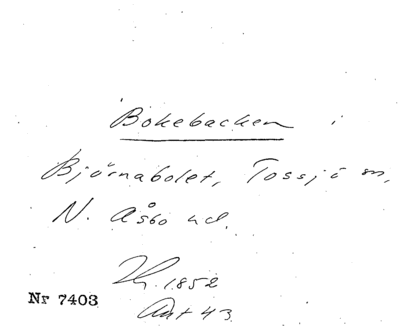 Bokebacken i
Björnabolet, Tossjö m,
N. Åsbo hd.
Th. 1852
Nr 7403
Ant 43